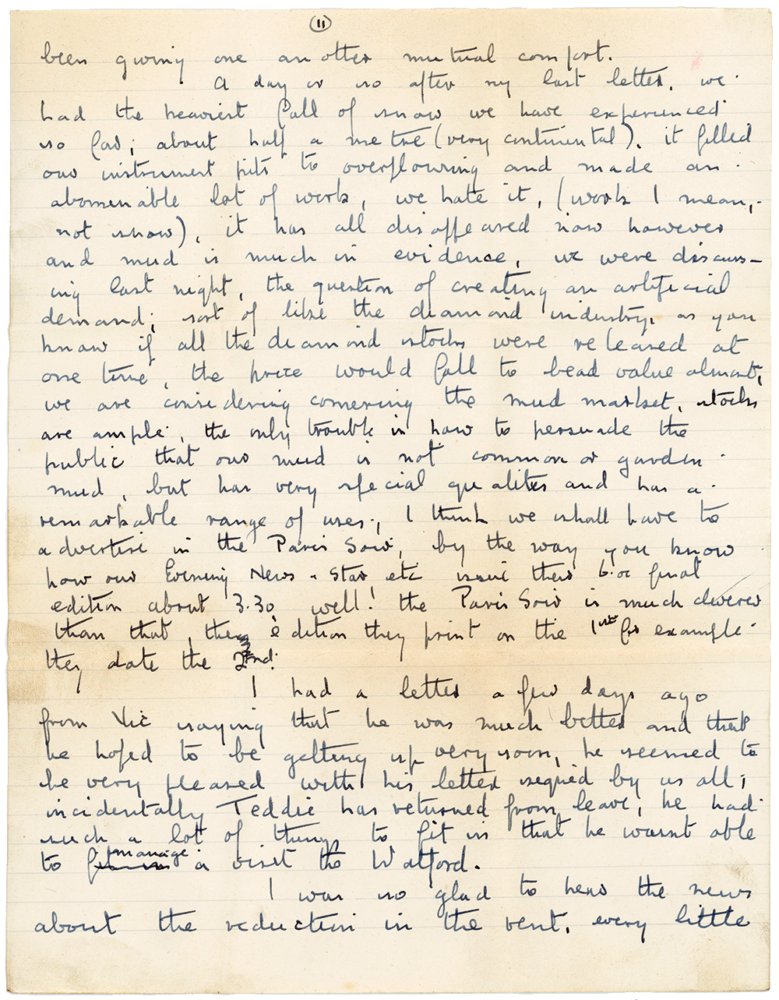 11
been giving one another mutual comfort.
A day or so after my last letter, we
had the heaviest fall of snow we have experienced
so far; about half a metre (very continental), it filled
our instrument pits to overflowing and made an
abominable lot of work, we hate it, (work I mean,
not snow), it has all disappeared now however
and mud is much in evidence, we were discuss-
ing last night, the question of creating an artificial
demand; sort of like the diamond industry, as you
know if all the diamond stocks were released at
one time, the price would fall to bead value almost,
we are considering cornering the mud market, stocks
are ample, the only trouble is how to persuade the
public that our mud is not common or garden
mud, but has very special qualities and has a
remarkable range of uses; I think we shall have to
advertise in the Paris Soir, by the way you know
how our Evening News - Star etc issue their 6.oc final
edition about 3.30, well! the Paris Soir is much cleverer
than that, the edition they print on the 1st for example
they date the 3rd!
I had a letter a few days ago
from Vic saying that he was much better and that
he hoped to be getting up very soon, he seemed to
be very pleased with his letter signed by us all;
incidentally Teddie has returned from leave, he had
such a lot of things to fit in that he wasnt able
to manage a visit to Watford.
I was so glad to hear the news
about the reduction in the rent, every little